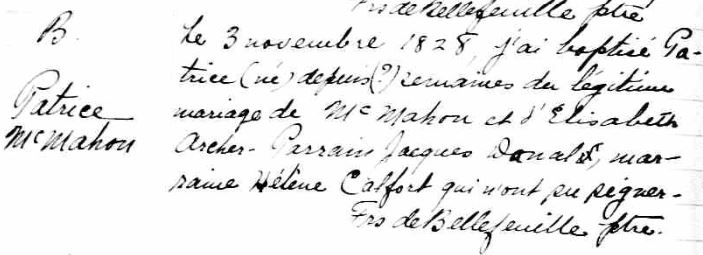 Frs de Bellefeuille ptre
B. Le 3 novembre 1828, j'ai baptisé Pa-
trice (né) depuis (?) semaines du légitime
Patrice mariage de McMahon et d'Elisabeth
McMahon Archer - Parrain Jacques Donald, mar-
raine Hélène Calfort qui n'ont pu signer -
Frs de Bellefeuille ptre.